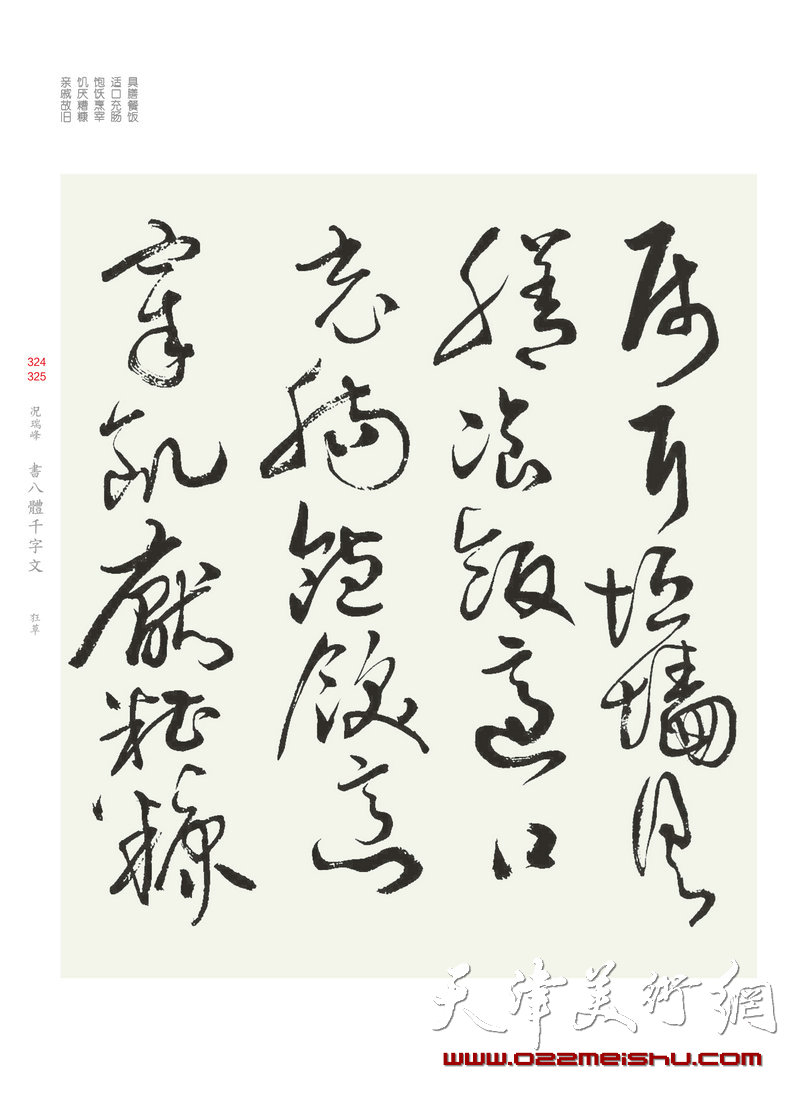 具膳餐饭
适口充肠
饱饫烹宰
饥厌糟糠
亲戚故旧
属耳垣墙具
膳飡飯適口
充腸飽飫烹
宰飢厭糟糠
324
325
况瑞峰 書八體千字文 狂草
天津美術網
www.022meishu.com